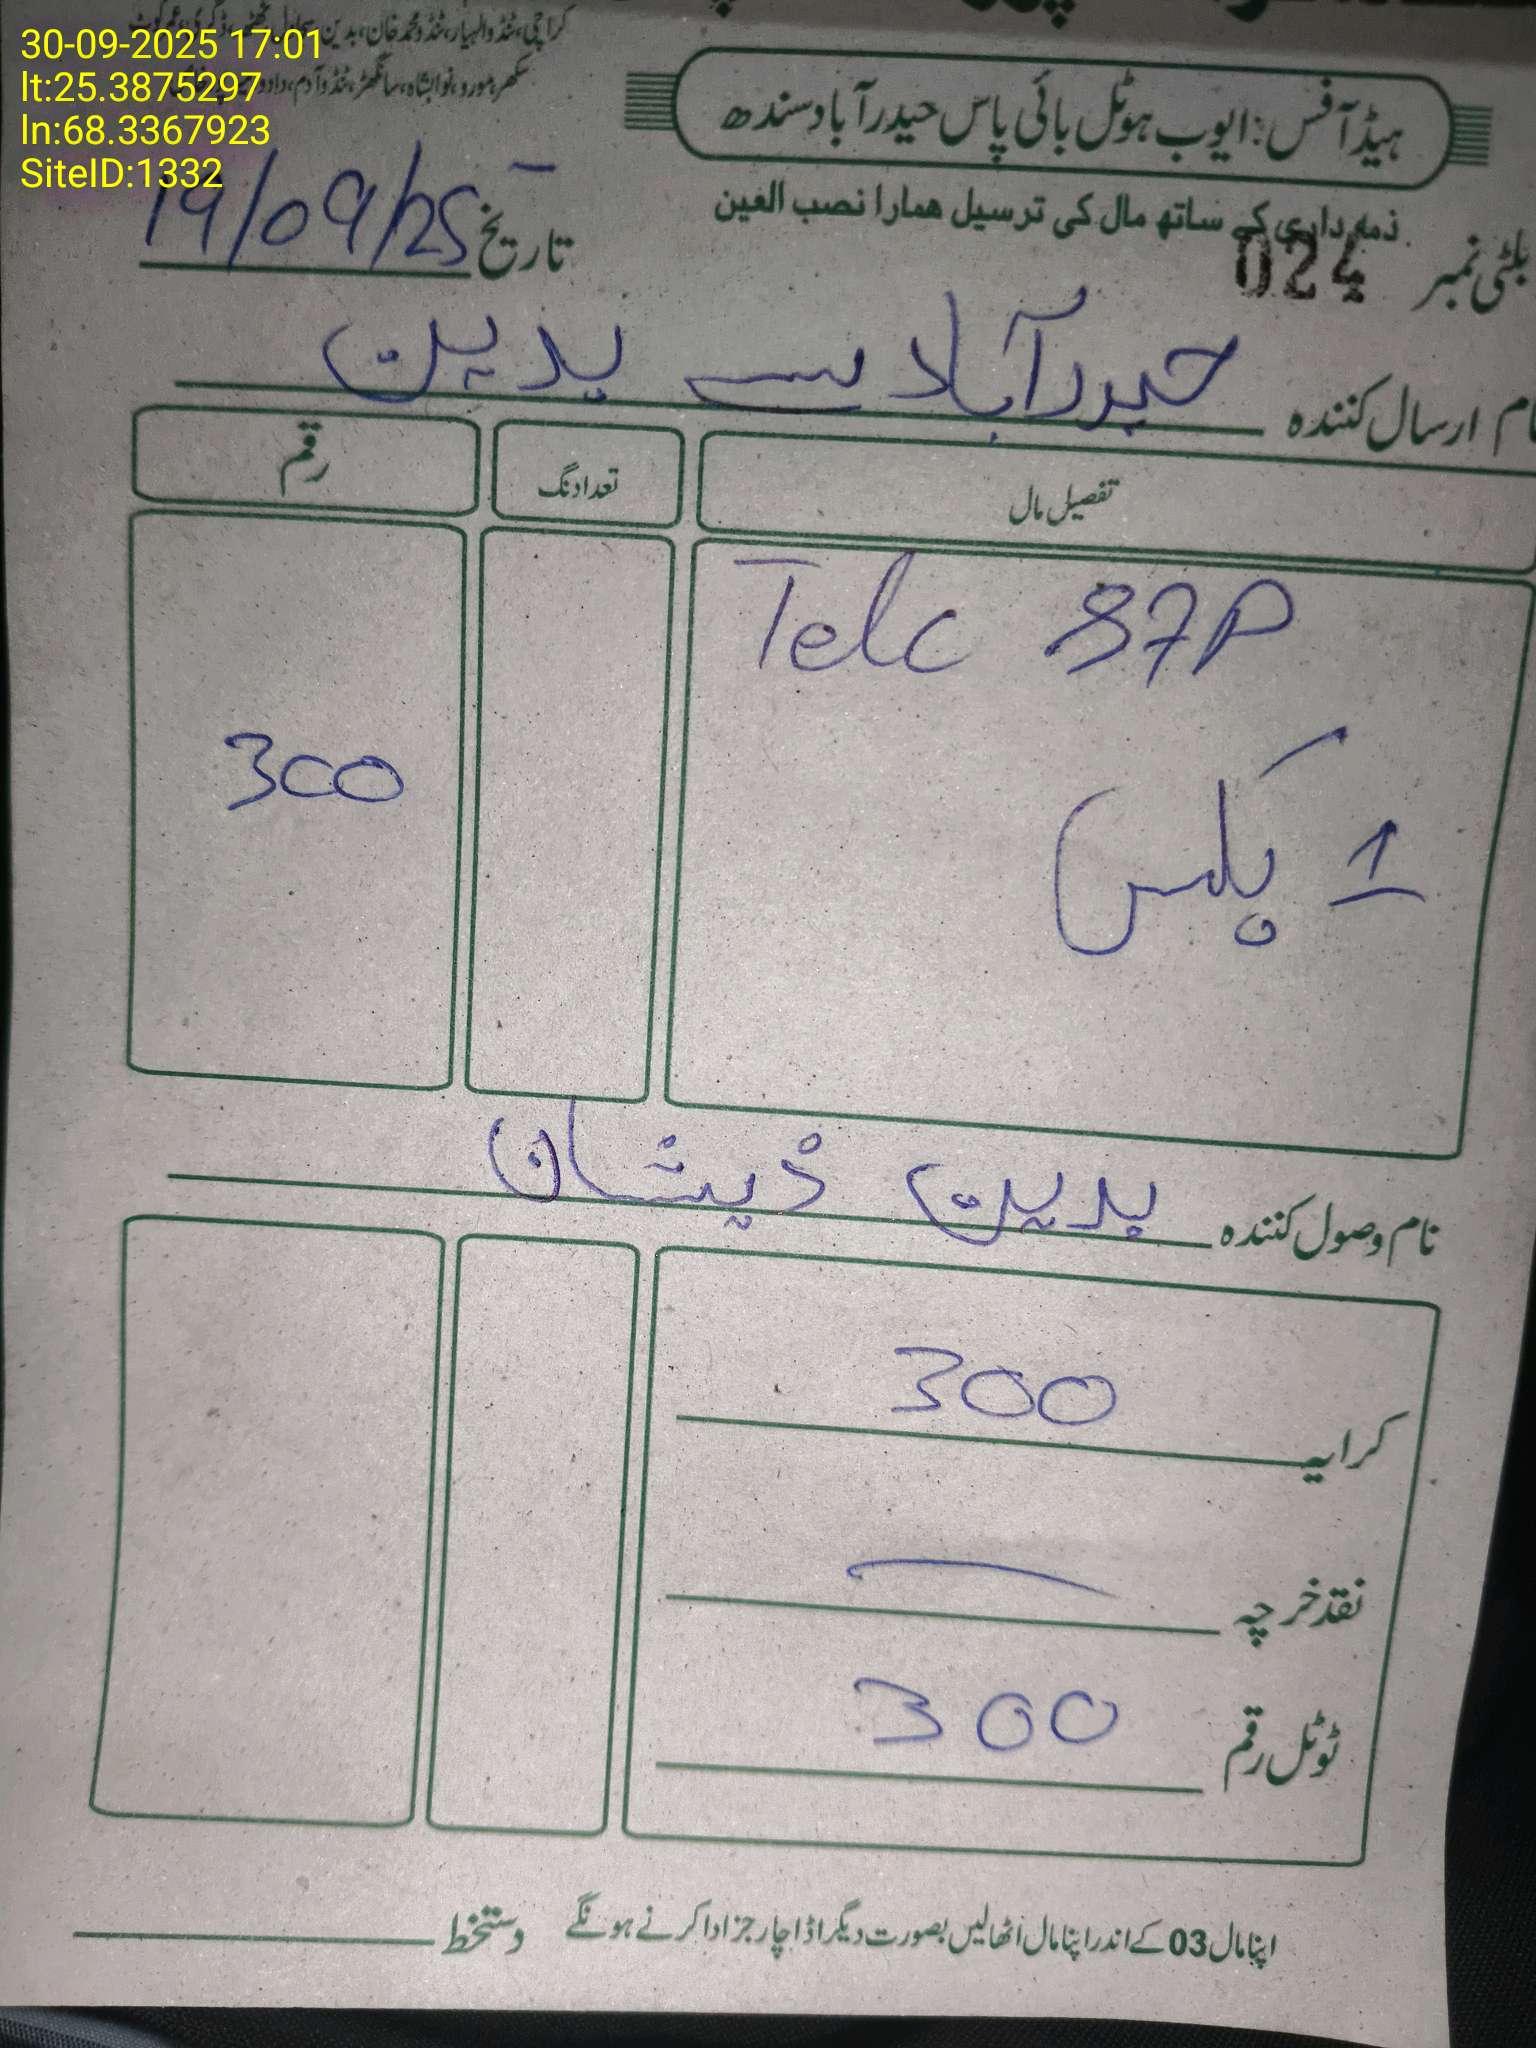 30-09-2025 17:01
lt:25.3875297
ln:68.3367923
SiteID:1332
کراچی، ٹنڈوالہیار، ٹنڈومحمدخان، بدین، سجاول، ٹھٹھہ، ڈگری، عمرکوٹ
سکھر، مورو، نوابشاہ، سانگھڑ، ٹنڈوآدم، دادو
ہیڈ آفس: ایوب ہوٹل بائی پاس حیدرآباد سندھ
ذمہ داری کے ساتھ مال کی ترسیل ھمارا نصب العین
بلٹی نمبر 024
تاریخ 19/09/25
نام ارسال کنندہ حیدرآباد سے بدین
تفصیل مال تعداد نگ رقم
Telc 87P
1 بکس 300
نام وصول کنندہ بدین ذیشان
کرایہ 300
نقد خرچہ —
ٹوٹل رقم 300
اپنا مال 03 کے اندر اپنا مال اٹھالیں بصورت دیگر اڈا چارجز ادا کرنے ہونگے دستخط